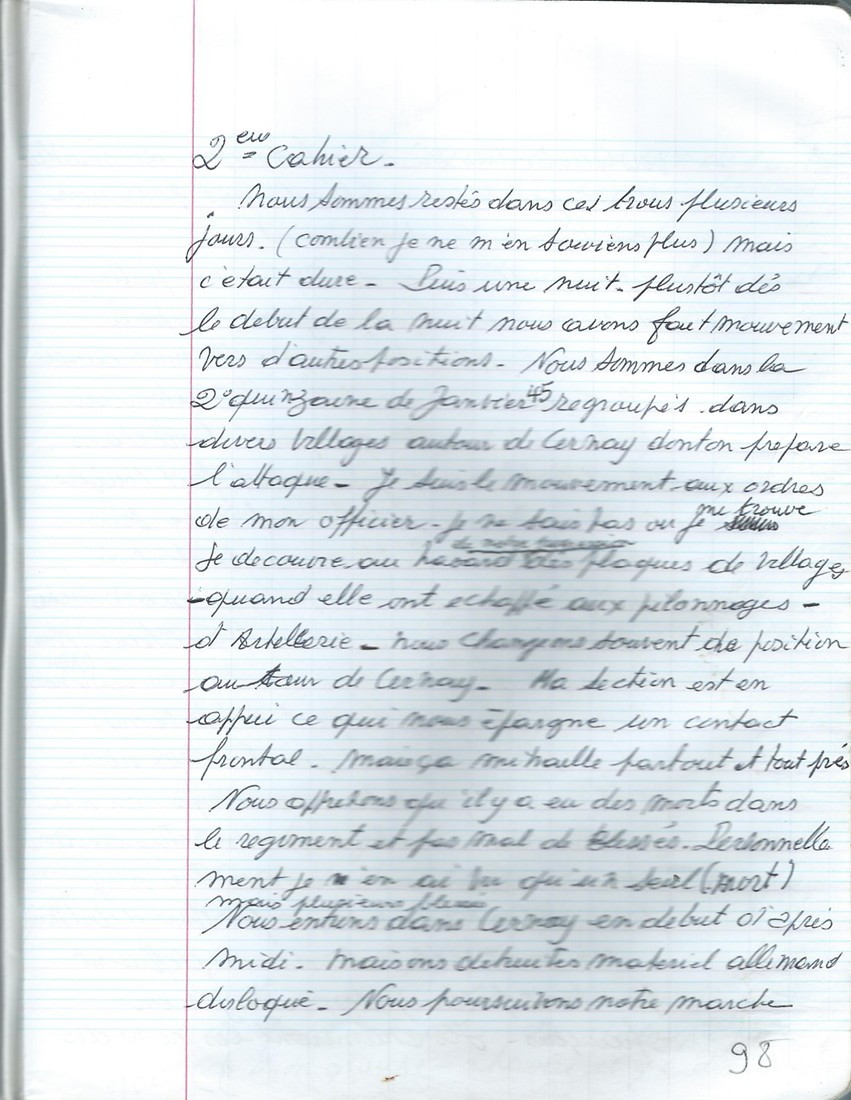 2eme Cahier -
Nous sommes restés dans ces trous plusieurs
jours. (comlien je ne m'en souviens plus) mais
c'etait dure - Puis une nuit - plustôt dés
le debut de la nuit nous avons fait mouvement
vers d'autres positions - Nous sommes dans la
2° quinzaine de Janvier 45 regroupés dans
divers villages autour de Cernay dont on prepare
l'attaque - Je suis le mouvement aux ordres
de mon officier - je ne sais pas ou je me trouve
Je decouvre au hasard de notre des plaques de villages
- quand elle ont echappé aux pilonnages -
d'Artellerie - nous changeons souvent de position
autour de Cernay - Ma section est en
appui ce qui nous épargne un contact
frontal - mais ça mitraille partout et tout prés
Nous apprenons qu'il y a eu des morts dans
le regiment et pas mal de blessés. Personnelle
ment je n'en ai vu qu'un seul (mort)
mais plusieurs blessés
Nous entrons dans Cernay en debut d'aprés
midi - maisons detruites materiel allemand
disloqué - Nous poursuivons notre marche
98